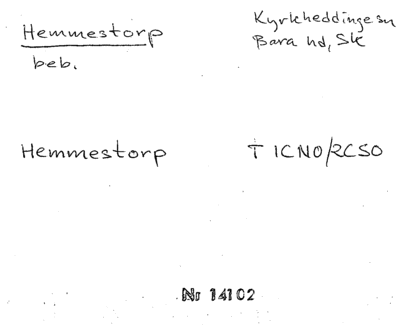 Hemmestorp
Kyrkheddinge sn
beb.
Bara hd, Sk
Hemmestorp
T 1CN0/2CS0
Nr 14102